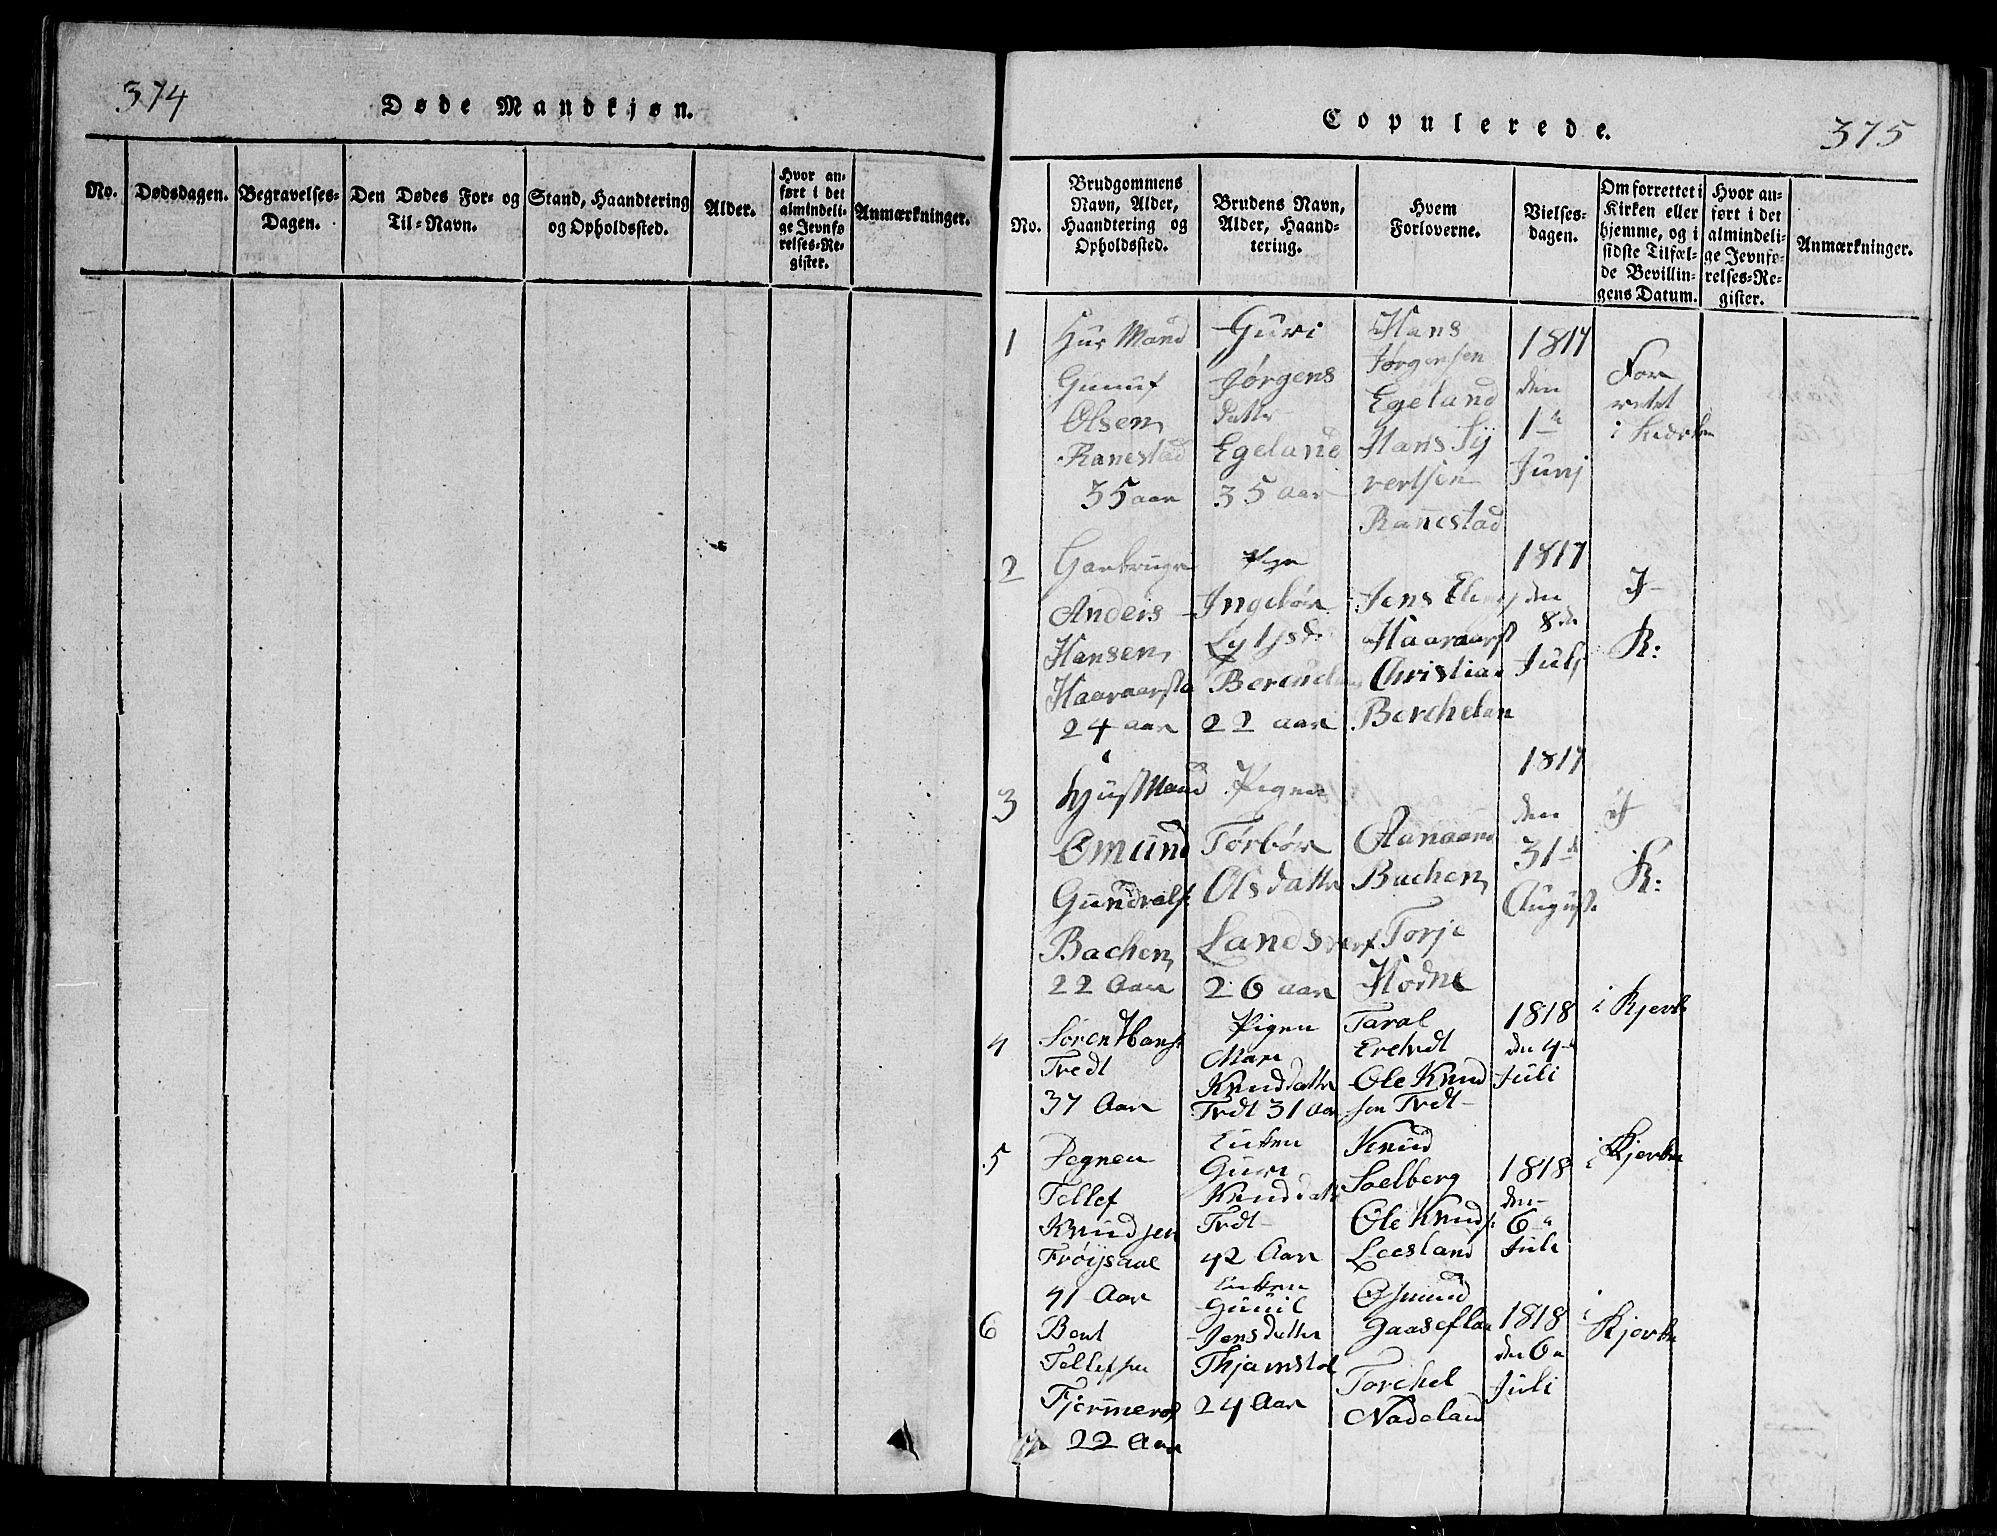 374
Døde Mandkjøn.
No.
Dødsdagen.
Begravelses-
Dagen.
Den Dødes For- og
Til-Navn.
Stand, Haandtering
og Opholdssted.
Alder.
Hvor an-
ført i det
almindeli-
ge Jevnfø-
relses-Re-
gister.
Anmærkninger.
Copulerede.
375
No.
Brudgommens
Navn, Alder,
Haandtering og
Opholdssted.
Brudens Navn,
Alder, Haand-
tering.
Hvem
Forloverne.
Vielses-
dagen.
Om forrettet i
Kirken eller
hjemme, og i
sidste Tilfæl-
de Bevillin-
gens Datum.
Hvor an-
ført i det
almindeli-
ge Jevnfø-
relses-Re-
gister.
Anmærkninger.
1
Hus Mand
Olsen
Ranestad
35 aar
Guri
Jørgens
datter
Egeland
35 aar
Hans
Jørgensen
Egeland
Hans Sy
vertsen
Ranestad
1817
den
1
Junj
For
retet
i Kirken
2
Anders
Hansen
24 aar
Pige
Ingebør
22 aar
Jens
Christian
1817
den
8de
Julj
J
K:
3
Husmand
Omund
Bachen
22 Aar
Pigen
Tørbør
Olsdatter
26 aar
Aanaand
Bachen
Torje
Hodne
1817
den
31
August
J
K:
4
Søren Hans
Tredt
37 Aar
Pigen
Mare
Knudsdatter
Tredt 31 Aar
Taral
Ole Knud
sen Tredt
1818
den 4
Juli
i Kjerke
5
Tellef
Knudsen
Frøysaae
41 Aar
Enken
Guri
Knudsdatter
Tredt
42 Aar
Knud
Soelberg
Ole Knuds
Leesland
1818
den
6
Juli
i Kjerken
6
Bent
Tellefsen
22 Aar
Enken
Gunil
Jensdatter
24 Aar
Osmund
Torchel
Nadeland
1818
den 6
Juli
i
Kjerke